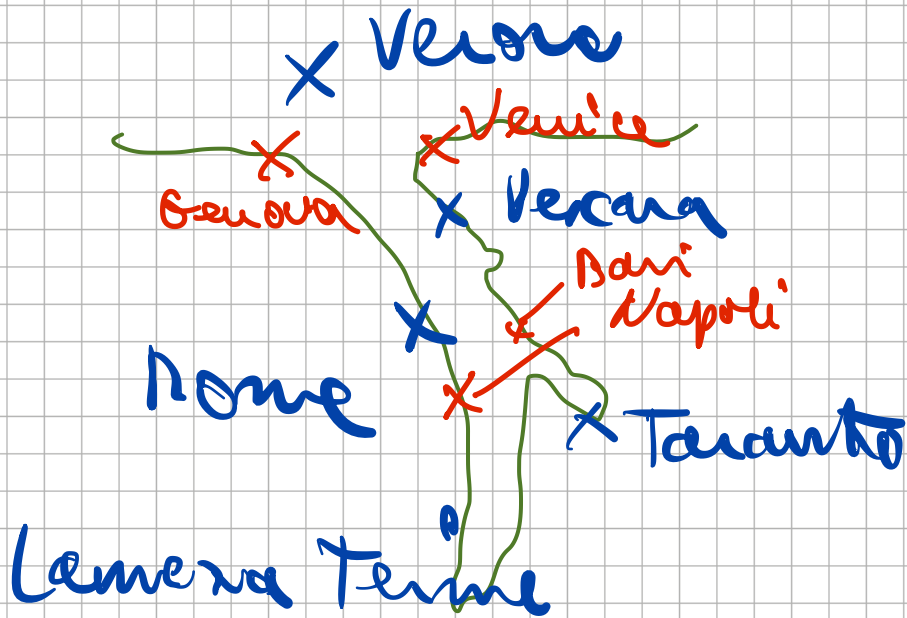 Verona
Venice
Genova
Pescara
Bari
Napoli
Rome
Taranto
Lamezia Terme